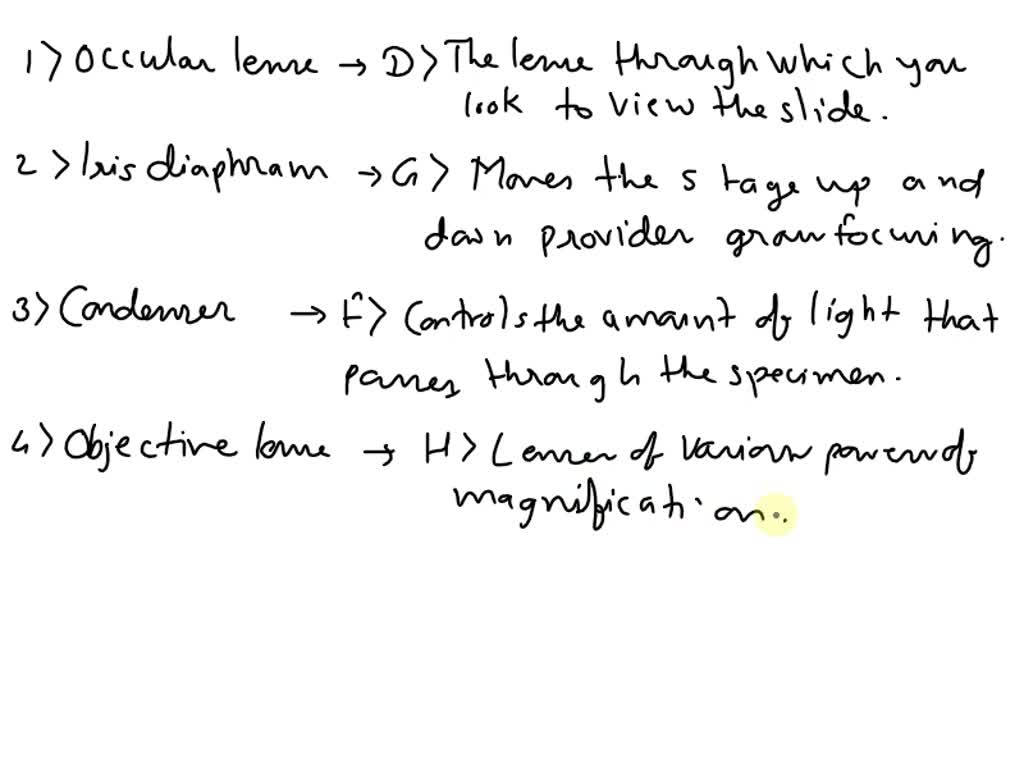 1> Occular lense → D> The lense through which you
look to view the slide.
2> Iris diaphram → G> Moves the stage up and
down provider graw focusing.
3> Condenser → E> Controls the amount of light that
passes through the specimen.
4> Objective lense → H> Lenses of various powers of
magnification.